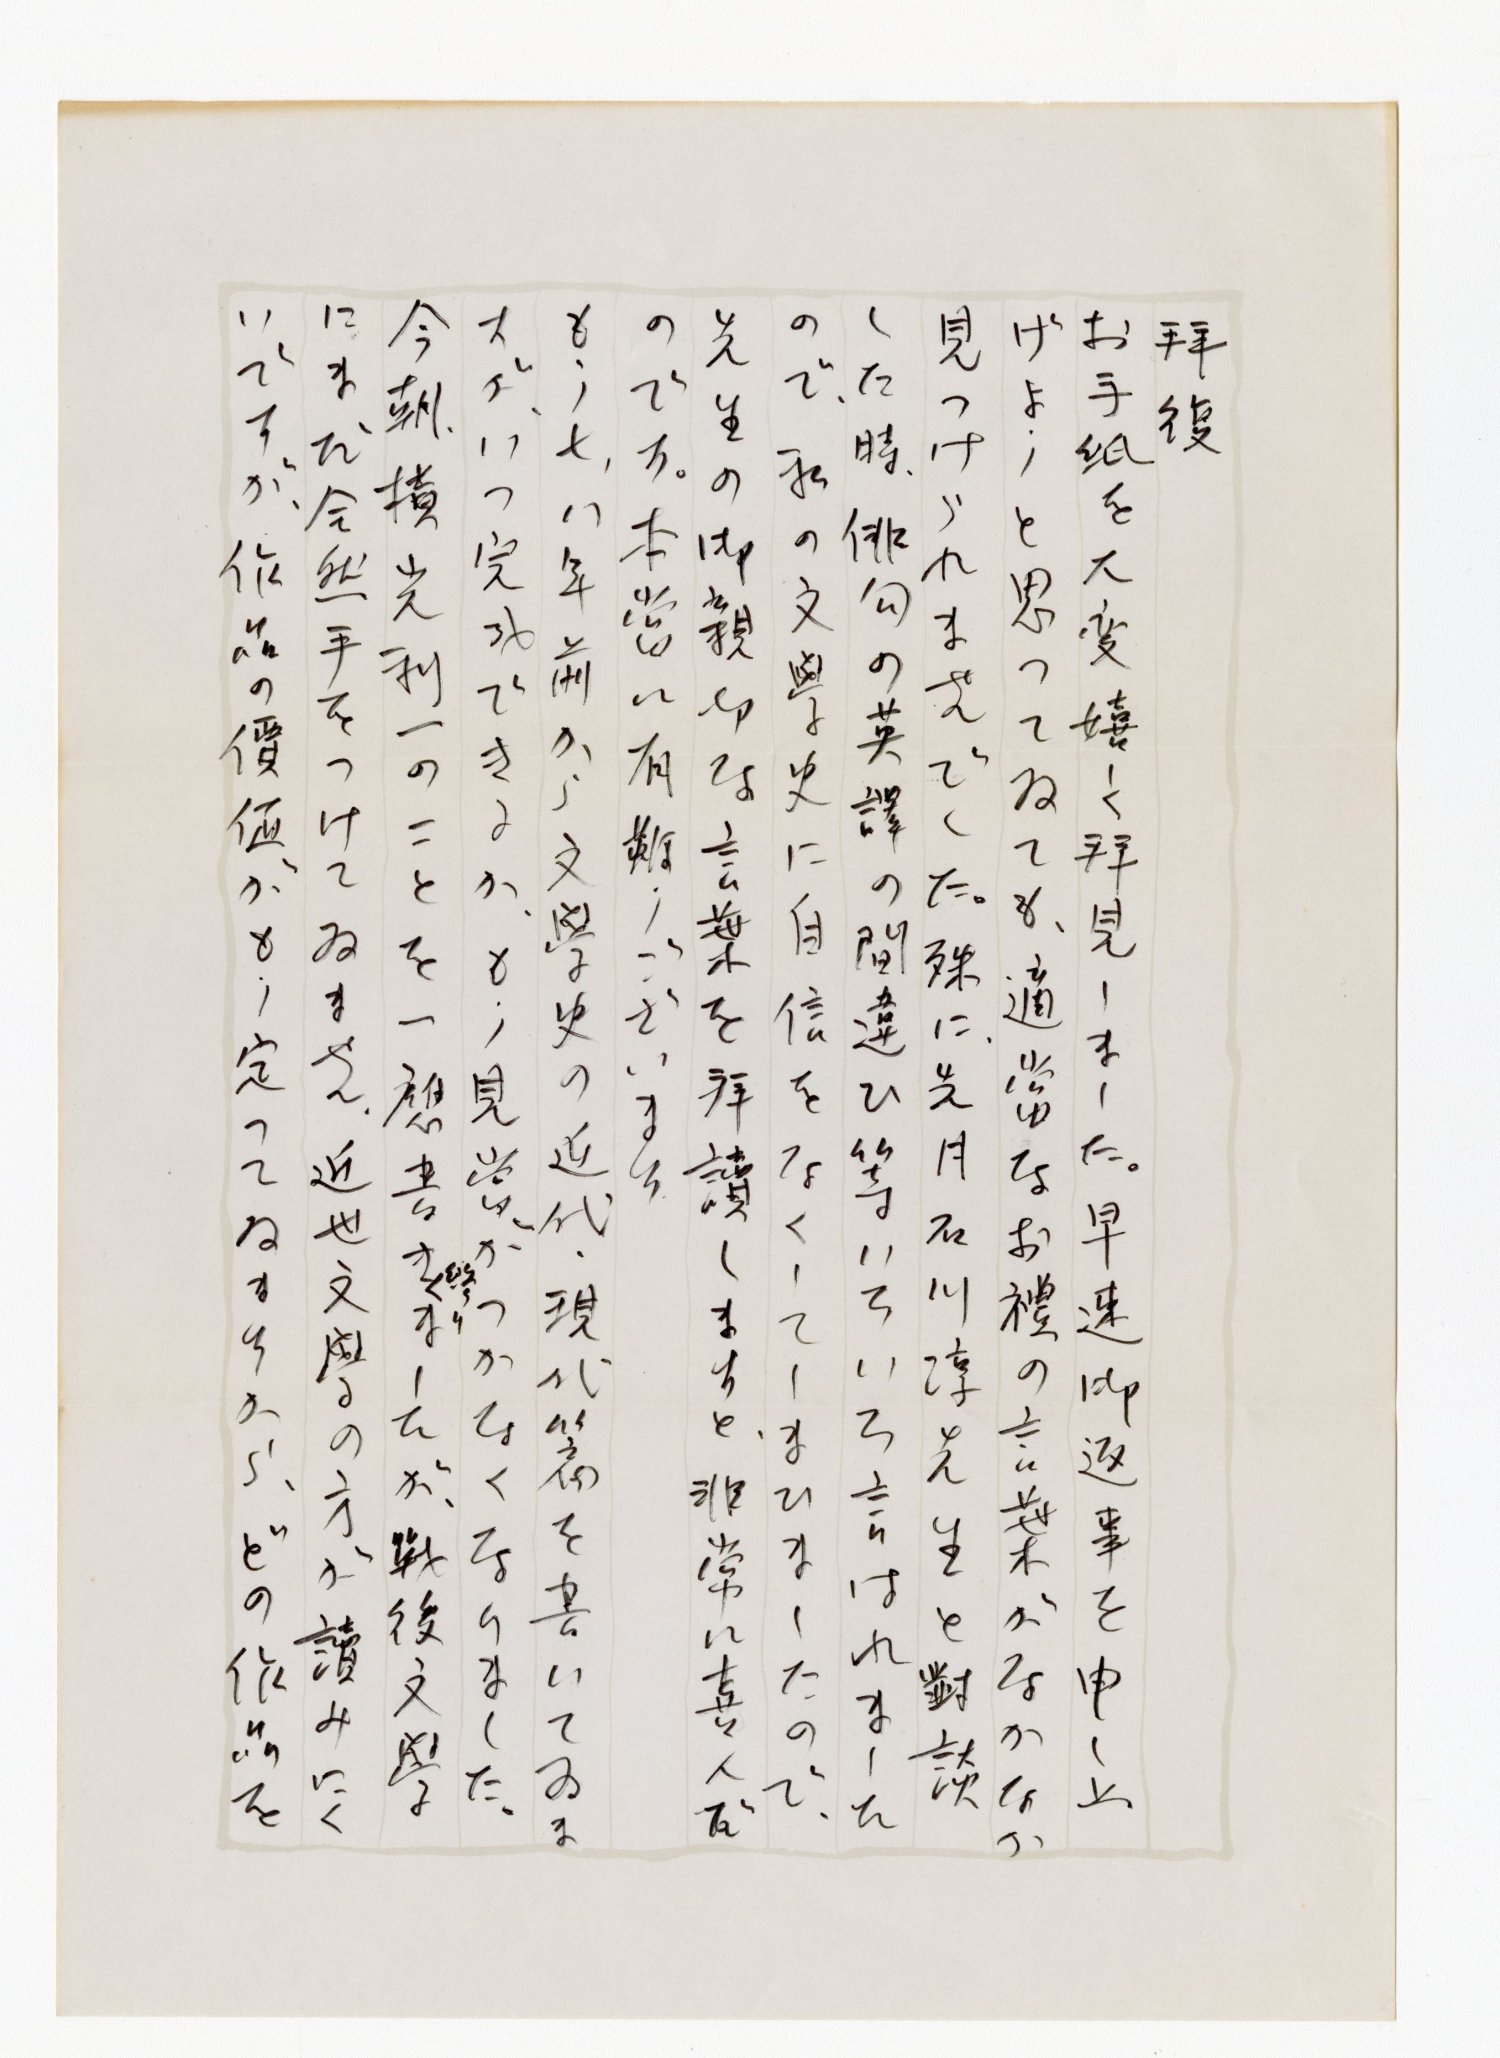 拝復
お手紙を大変嬉しく拝見しました。早速御返事を申し上
げようと思ってゐても、適當なお禮の言葉がなかなか
見つけられませんでした。殊に、先月石川淳先生と對談
した時、俳句の英譯の間違ひ等いろいろ言はれました
ので、私の文學史に自信をなくしてしまひましたので、
先生の御親切な言葉を拝讀しますと、非常に喜んだ
のです。本當に有難うございます
もう七、八年前から文學史の近代・現代篇を書いてゐま
すが、いつ完成できるか、もう見當がつかなくなりました。
今朝、横光利一のことを一應書き終りましたが、戰後文學
にまだ全然手をつけてゐません。近世文學の方が讀みにく
いですが、作品の價値がもう定ってゐますから、どの作品を